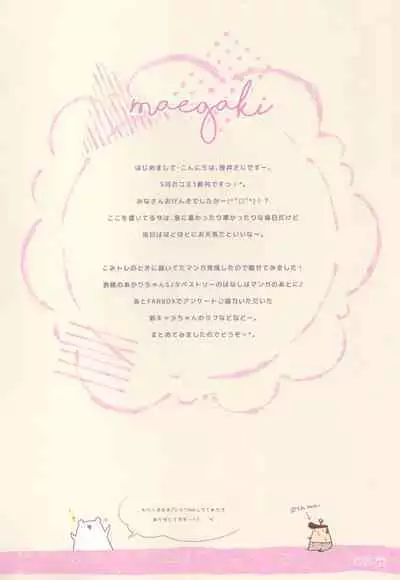 maegaki
はじめまして・こんにちは、笹井さじですー。
5月のコミ1新刊ですっ♪*。
みなさんおげんきでしたかー(*´▽`*)♪?
ここを書いている今は、急に暑かったり寒かったりな毎日だけど
当日はほどほどにお天気だといいな〜。
こみトレのときに描いてたマンガ完成したので載せてみました！
表紙のあかりちゃんB2タペストリーのはなしはマンガのあとに♪
あとFANBOXでアンケートご協力いただいた
新キャラちゃんのラフなどなどー。
まとめてみましたのでどうぞー*。
ありがとうですー！